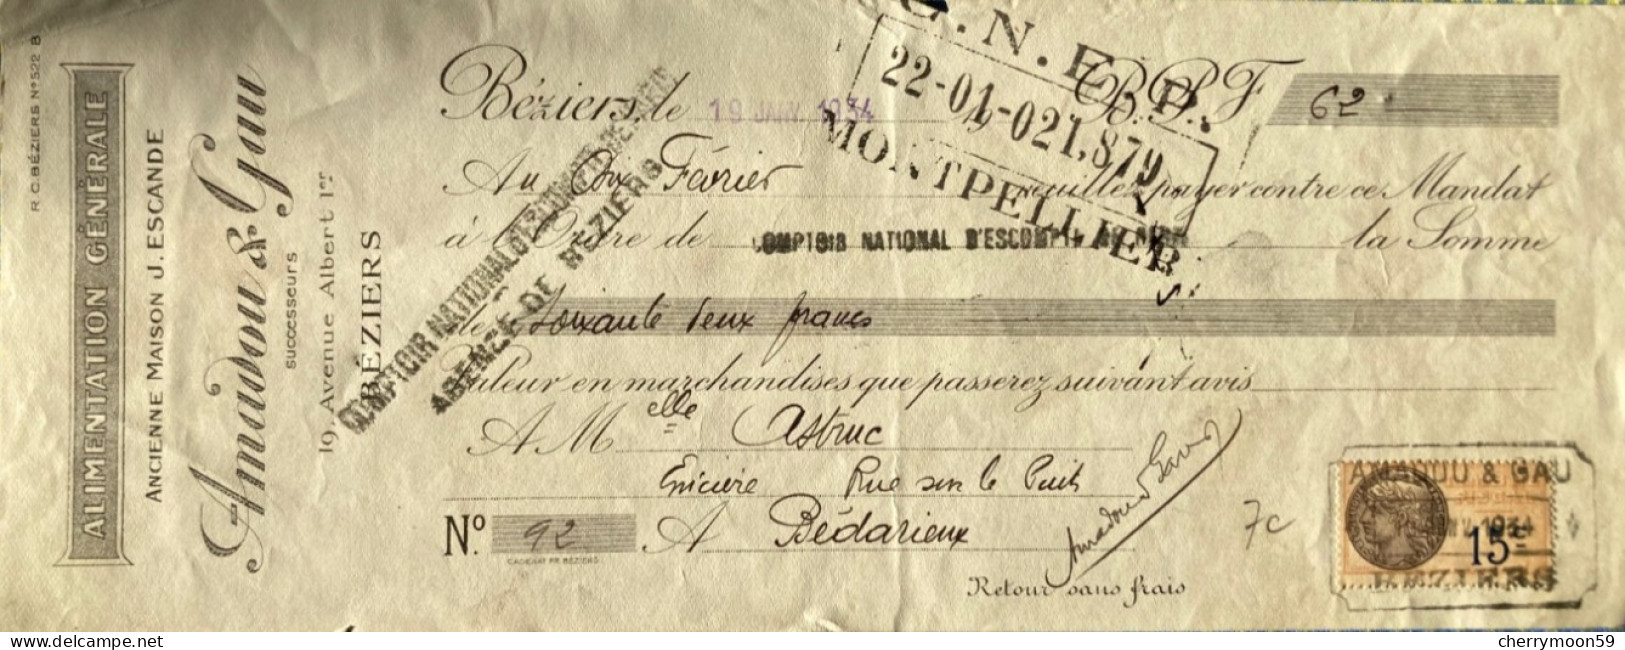 R.C. BÉZIERS N° 522 B
ALIMENTATION GÉNÉRALE
ANCIENNE MAISON J. ESCANDE
Amadou & Gau
successeurs
19, Avenue Albert 1er
BÉZIERS
C.N.E.P.
22-01-021,879
MONTPELLIER
Béziers, le 19 JANV. 1934 B.P.F. 62
Au dix Février veuillez payer contre ce Mandat
à l'Ordre de COMPTOIR NATIONAL D'ESCOMPTE DE PARIS la Somme
de Soixante deux francs
COMPTOIR NATIONAL D'ESCOMPTE DE PARIS
AGENCE DE BÉZIERS
Valeur en marchandises que passerez suivant avis
A Melle Astruc
Epicière Rue sur le Puits
N° 92 A Bédarieux
CADENAT FR. BÉZIERS
Amadou Gau
7c
Retour sans frais
AMADOU & GAU
1934
15c
BEZIERS
delcampe.net
cherrymoon59